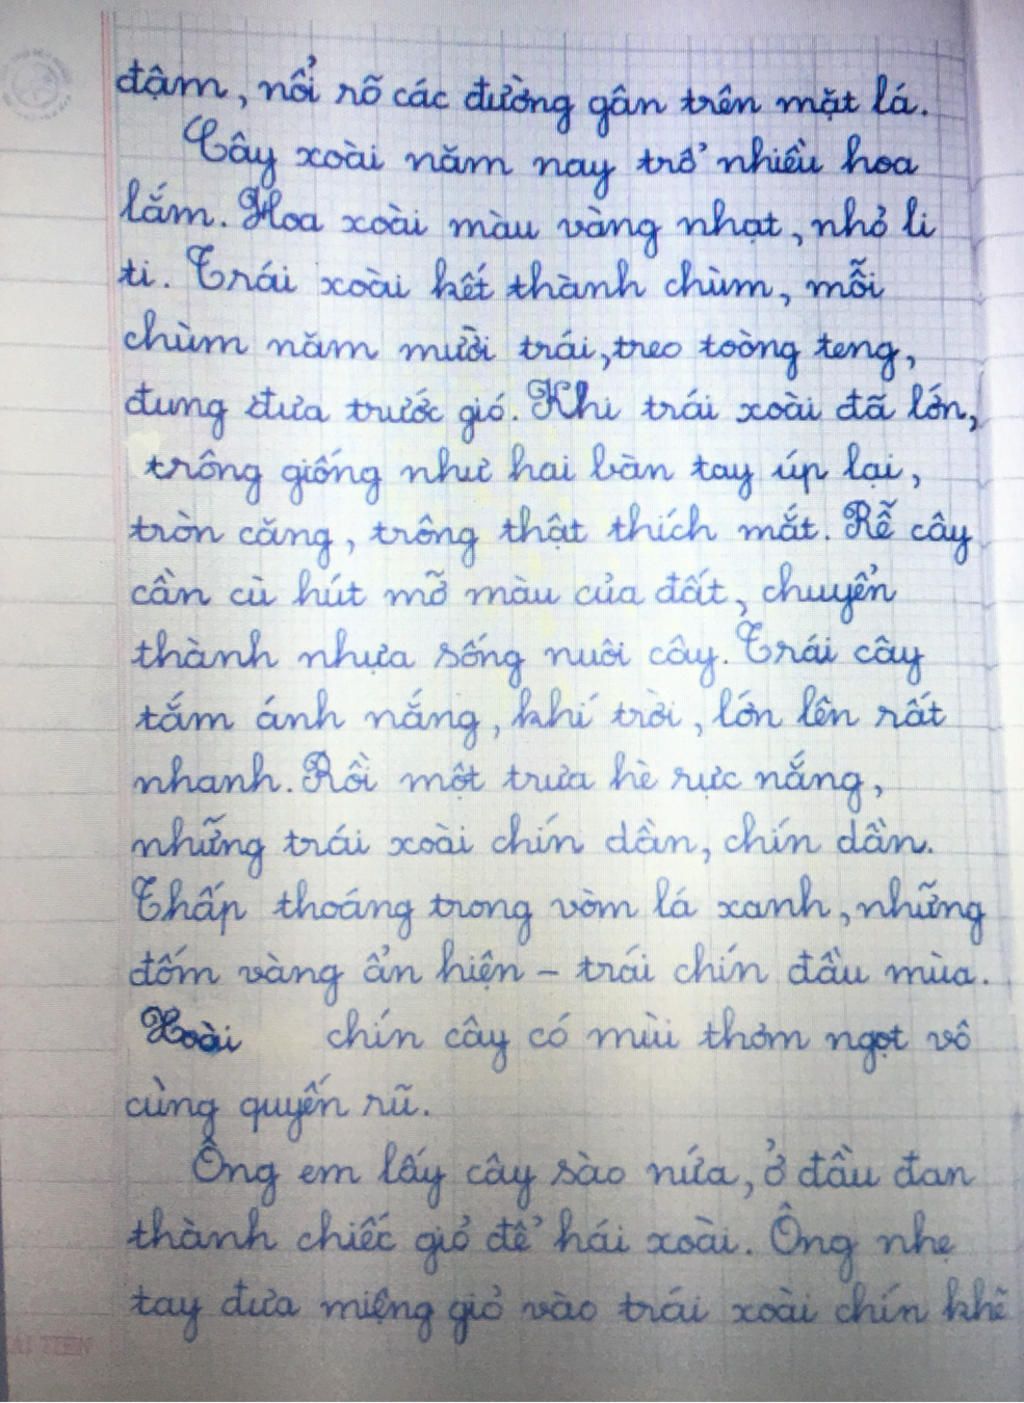 đậm, nổi rõ các đường gân trên mặt lá.
Cây xoài năm nay trổ nhiều hoa
lắm. Hoa xoài màu vàng nhạt, nhỏ li
ti. Trái xoài kết thành chùm, mỗi
chùm năm mười trái, treo toòng teng,
đung đưa trước gió. Khi trái xoài đã lớn,
trông giống như hai bàn tay úp lại,
tròn căng, trông thật thích mắt. Rễ cây
cần cù hút mỡ màu của đất, chuyển
thành nhựa sống nuôi cây. Trái cây
tắm ánh nắng, khí trời, lớn lên rất
nhanh. Rồi một trưa hè rực nắng,
những trái xoài chín dần, chín dần.
Thấp thoáng trong vòm lá xanh, những
đốm vàng ẩn hiện - trái chín đầu mùa.
Xoài chín cây có mùi thơm ngọt vô
cùng quyến rũ.
Ông em lấy cây sào nứa, ở đầu đan
thành chiếc giỏ để hái xoài. Ông nhẹ
tay đưa miệng giỏ vào trái xoài chín khẽ